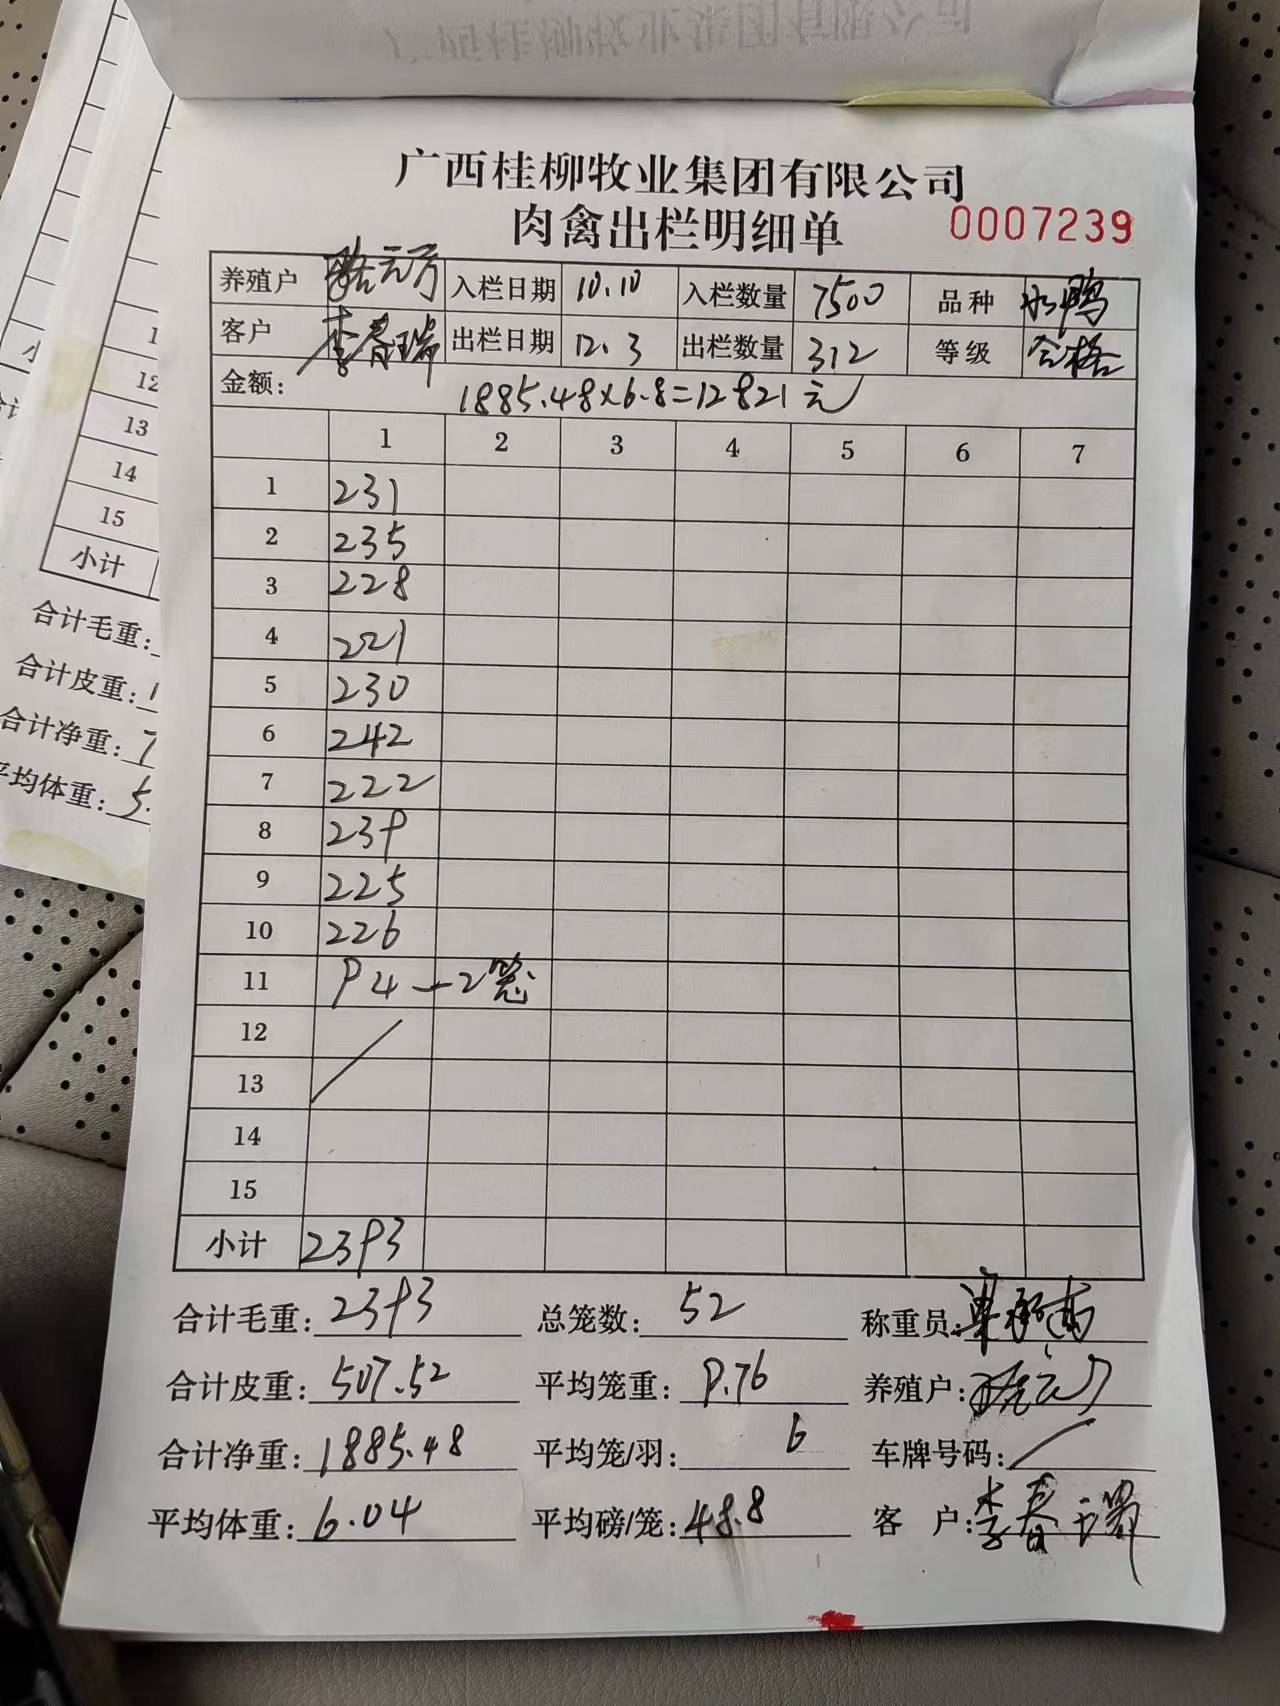 广西桂柳牧业集团有限公司
肉禽出栏明细单
0007239
养殖户 入栏日期 10.10 入栏数量 7500 品种 水鸭
客户 李春瑞 出栏日期 12.3 出栏数量 312 等级 合格
金额: 1885.48×6.8=12821元
1 2 3 4 5 6 7
1 231
2 235
3 228
4 221
5 230
6 242
7 222
8 239
9 225
10 226
11 94—2笼
12
13
14
15
小计 2393
合计毛重: 2393 总笼数: 52 称重员:
合计皮重: 507.52 平均笼重: 9.76 养殖户:
合计净重: 1885.48 平均笼/羽: 6 车牌号码: /
平均体重: 6.04 平均磅/笼: 48.8 客 户: 李春瑞
12
13
14
15
小计
合计毛重:
合计皮重:
合计净重: 7
平均体重: 5.